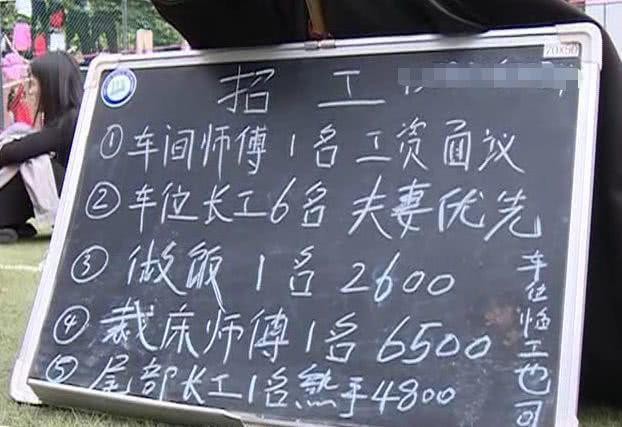 招工
①车间师傅1名工资面议
②车位长工6名 夫妻优先
③做饭1名2600
④裁床师傅1名6500
⑤尾部长工1名熟手4800
车位临工也可
70X50